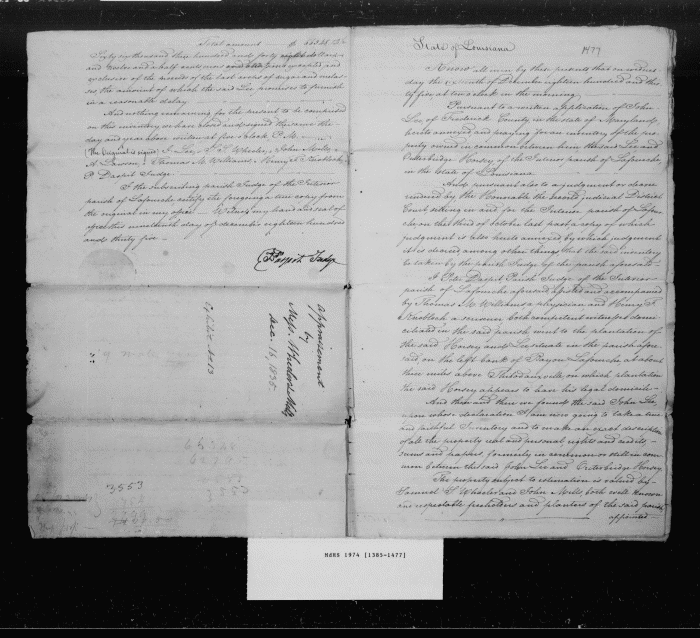 Total amount $ 66348.
Sixty six thousand three hundred and forty eight dollars
and twelve and a half cents more
exclusive of the results of the last crops of sugar and molas-
ses the amount of which the said Lee promises to furnish
in a reasonable delay
And nothing remaining for the present to be comprised
in this inventory we have closed and signed the same the
day and year above written at five o'clock P.M.
(The Original is signed) J. Lee, S. L. Wheeler, John Mills,
A. Dawson, Thomas M. Williams, Henry F. Knobloch
P. Daspit Judge.
I the subscribing parish Judge of the Interior
parish of Lafourche certify the foregoing a true copy from
the original in my office Witness my hand and seal of
office this nineteenth day of december eighteen hundred
and thirty five
P Daspit Judge
Appraisement
by
Mess. Wheeler & Mills
Dec. 16, 1835
Exhibit No 13
3553
3553
State of Louisiana
1477
Know all men by these presents that on wednes
day the sixteenth of December eighteen hundred and thir
ty five at two o'clock in the morning
Pursuant to a written application of John
Lee, of Frederick County in the state of Maryland,
hereto annexed and praying for an inventory of the pro
perty owned in common between him the said Lee and
Outterbridge Horsey of the Interior parish of Lafourche,
in the State of Louisiana
And pursuant also to a judgment or decree
rendered by the Honorable the second judicial District
Court sitting in and for the Interior parish of Lafour
che, on the third of october last past a copy of which
judgment is also hereto annexed by which judgment
it is decreed among other things that the said inventory
be taken by the parish Judge of the parish aforesaid
I P. Daspit Parish Judge of the Interior
parish of Lafourche aforesaid assisted and accompanied
by Thomas M. Williams a physician and Henry F.
Knobloch a scrivener both competent witnesses domi
ciliated in the said parish went to the plantation of
the said Horsey and Lee situate in the parish afore
said on the left bank of Bayou Lafourche at about
three miles above Thibodauxville, on which plantation
the said Horsey appears to have his legal domicile
And then and there we found the said John Lee,
upon whose declaration I am now going to take a true
and faithful Inventory and to make an exact description
of all the property real and personal rights and credits,
sums and papers, formerly in common or still in com
mon between the said John Lee and Outerbridge Horsey.
The property subject to estimation is valued by
Samuel L Wheeler and John Mills, both well known
and respectable freeholders and planters of the said parish
appointed
MdHR 1974 [1385-1477]